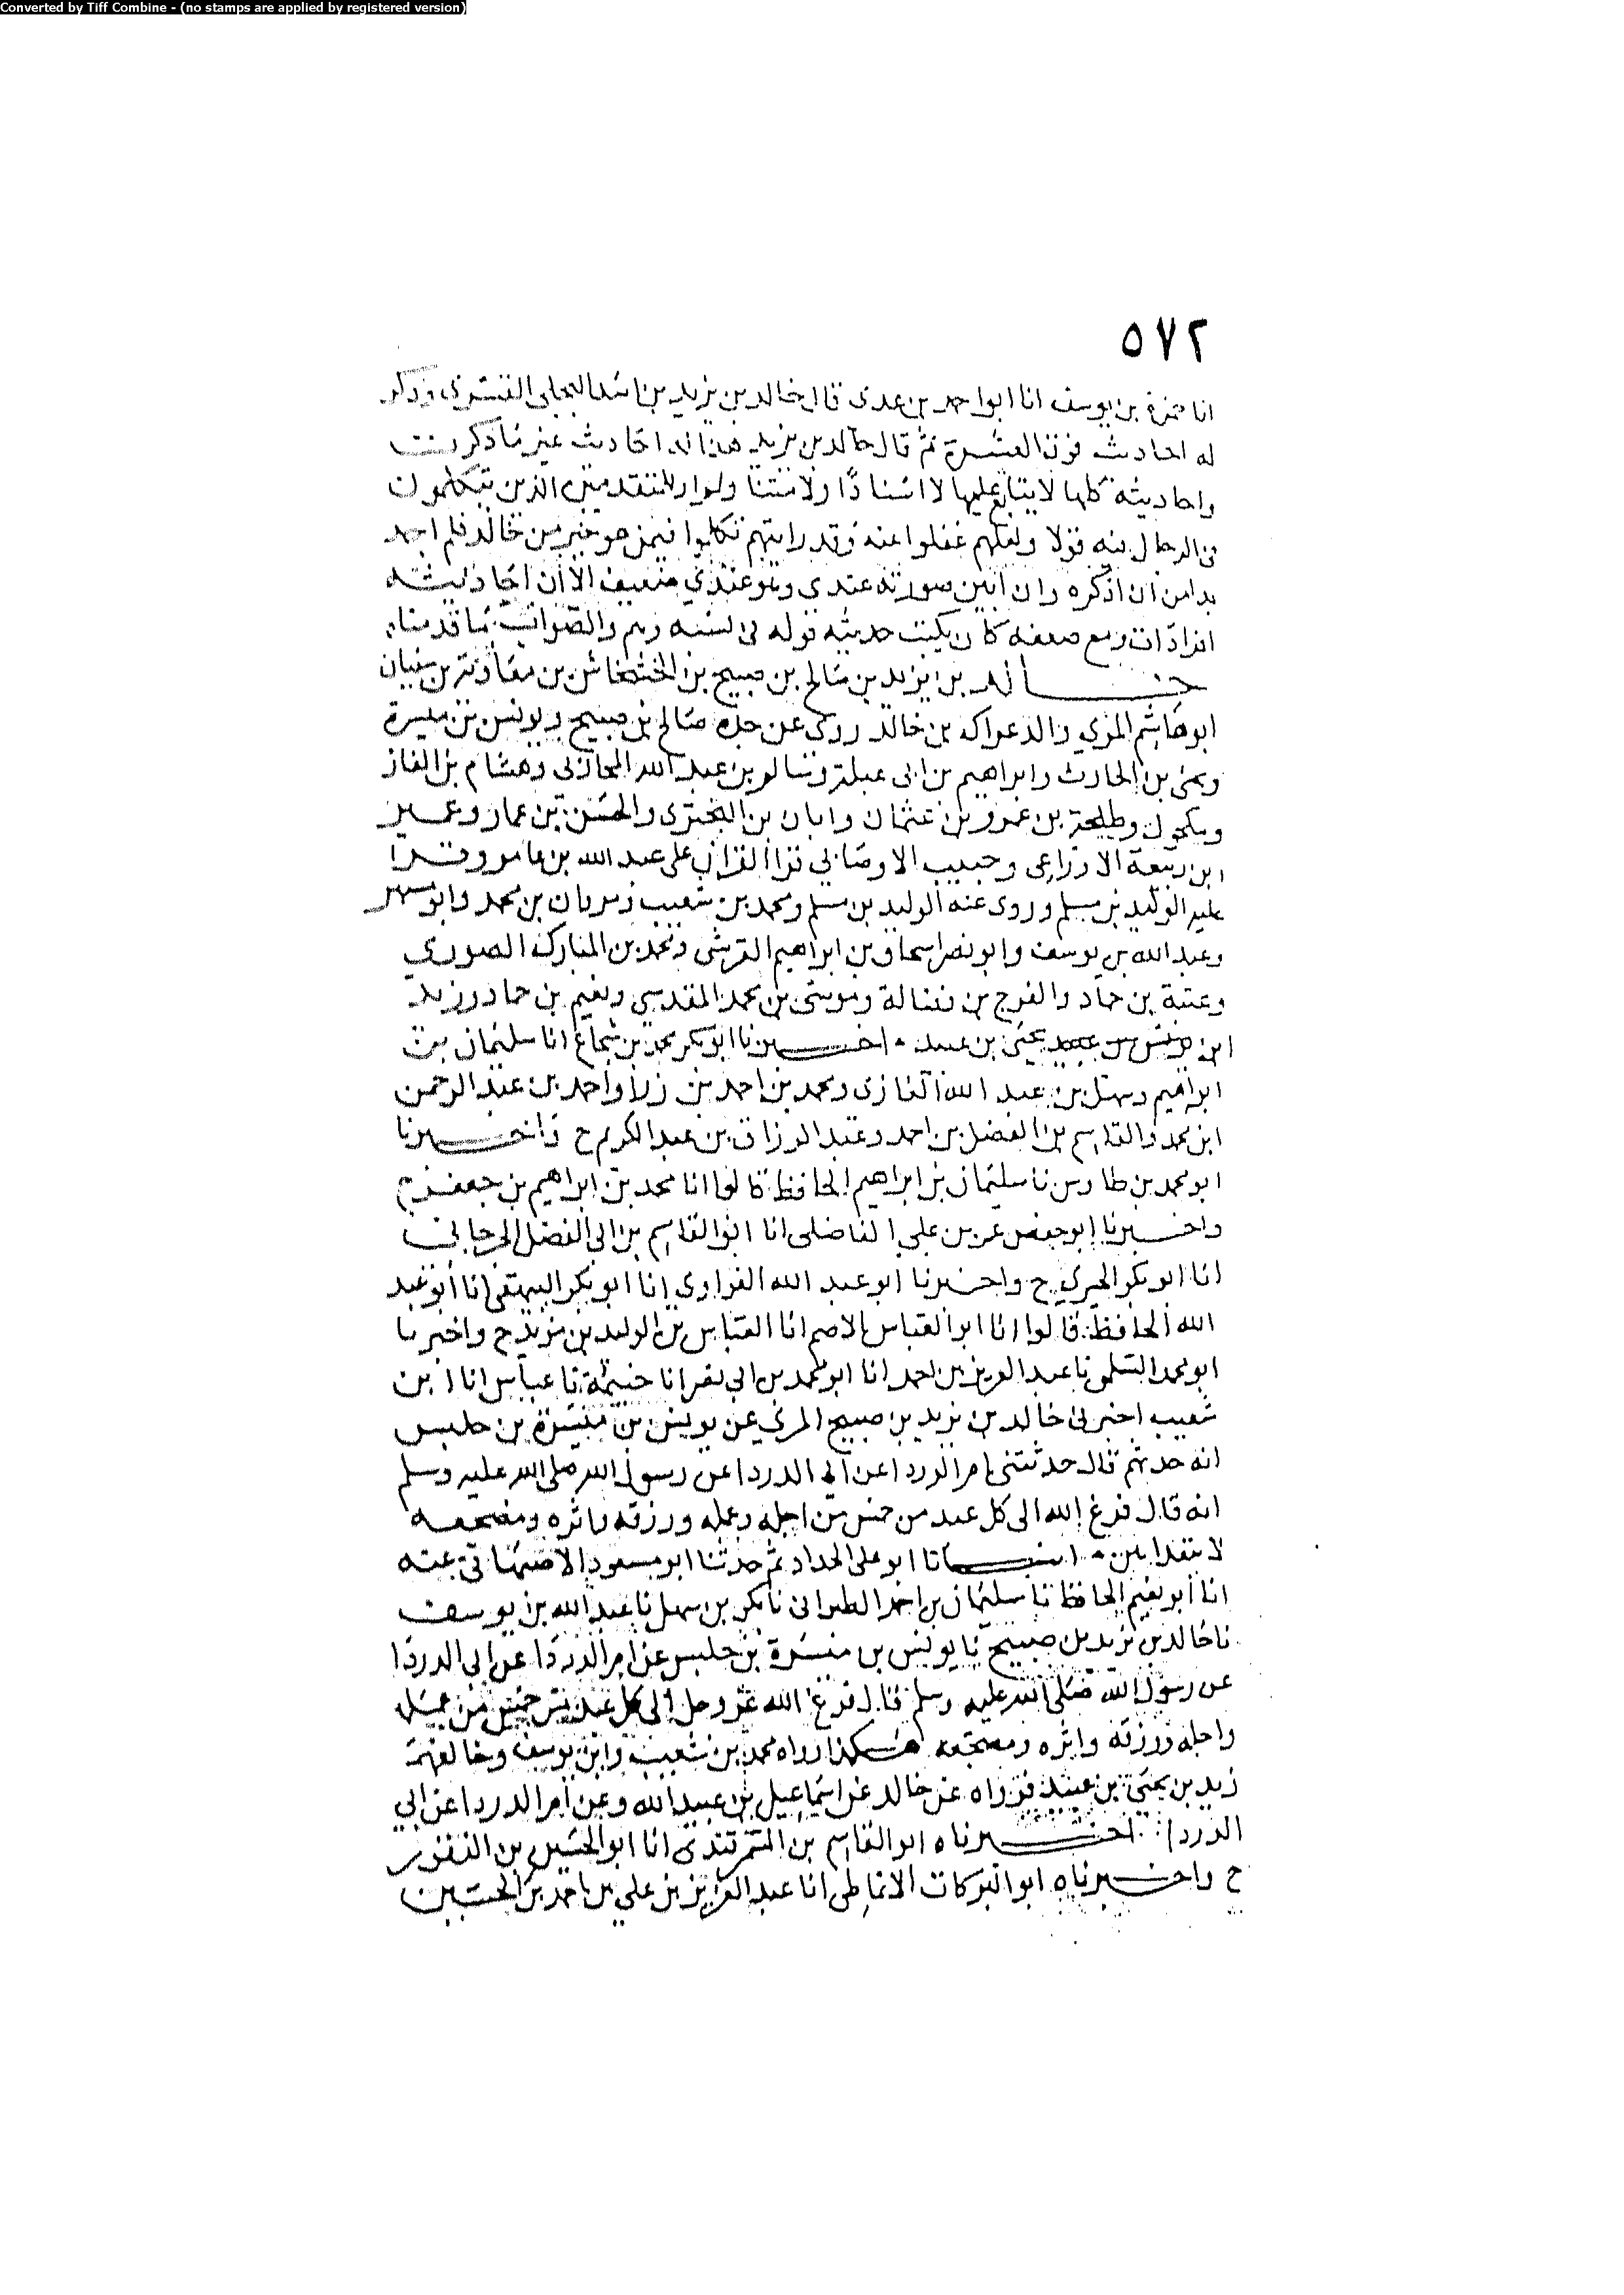 Converted by Tiff Combine - (no stamps are applied by registered version)
٥٧٢
انا حمزة بن يوسف انا ابو احمد بن عدى قال خالد بن يزيد بن اسد البجلى القسرى وذكر
له احاديث فوق العشرة ثم قال خالد بن يزيد هذا له احاديث غير ما ذكرت
واحاديثه كلها لا يتابع عليها لا اسنادًا ولا متنا ولم ار للمتقدمين الذين يتكلمون
فى الرجال فيه قولا ولعلهم غفلوا عنه وقد رايتهم تكلموا فيمن هو خير من خالد فلم اجد
بدا من ان اذكره وان ابين صورته عندى وهو عندي ضعيف الا ان احاديثه
افرادات ومع ضعفه كان يكتب حديثه قوله فى نسبه وهم والصواب ما قدمناه
خالد بن يزيد بن صالح بن صبيح بن الخشخاش بن معاوية بن سفيان
ابو هاشم المري والد عراك بن خالد روى عن جده صالح بن صبيح ويونس بن ميسرة
ويحيى بن الحارث وابراهيم بن ابى عبلة وسالم بن عبد الله المحاربى وهشام بن الغاز
ومكحول وطلحة بن عمرو بن عثمان وابان بن البخترى والحسن بن عمار وعمير
ابن ربيعة الاوزاعى وحبيب الاوصابي قرا القران على عبد الله بن عامر وقرا
عليه الوليد بن مسلم وروى عنه الوليد بن مسلم ومحمد بن شعيب ومروان بن محمد وابو مسهر
وعبد الله بن يوسف وابو نصر اسحاق بن ابراهيم القرشى ومحمد بن المبارك الصوري
وعتبة بن حماد والفرج بن فضالة وموسى بن محمد المقدسي ونعيم بن حماد وزيد
ابن يحيى بن عبيد ٠ اخبرنا ابو بكر محمد بن شجاع انا سليمان بن
ابراهيم وسهل بن عبد الله الغازى ومحمد بن احمد بن ررا واحمد بن عبد الرحمن
ابن محمد والقاسم بن الفضل بن احمد وعبد الرزاق بن عبد الكريم ح واخبرنا
ابو محمد بن طاوس نا سليمان بن ابراهيم الحافظ قالوا انا محمد بن ابراهيم بن جعفر ح
واخبرنا ابو حفص عمر بن علي الفاضلى انا ابو القاسم بن ابى الفضل الجرجانى
انا ابو بكر الحيري ح واخبرنا ابو عبد الله الفراوي انا ابو بكر البيهقى انا ابو عبد
الله الحافظ قالوا انا ابو العباس الاصم انا العباس بن الوليد بن مزيد ح واخبرنا
ابو محمد السلمى نا عبد العزيز بن احمد انا ابو محمد بن ابي نصر انا خيثمة نا عباس انا ابن
شعيب اخبرنى خالد بن يزيد بن صبيح المري عن يونس بن ميسرة بن حلبس
انه حدثهم قال حدثتنى ام الدردا عن ابي الدردا عن رسول الله صلى الله عليه وسلم
انه قال فرغ الله الى كل عبد من خمس من اجله وعمله ورزقه واثره ومضجعه
لا يتعداهن ٠ انبانا ابو على الحداد ثم حدثنا ابو مسعود الاصبهانى عنه
انا ابو نعيم الحافظ نا سليمان بن احمد الطبرانى نا بكر بن سهل نا عبد الله بن يوسف
نا خالد بن يزيد بن صبيح نا يونس بن ميسرة بن حلبس عن ام الدردا عن ابى الدردا
عن رسول الله صلى الله عليه وسلم قال فرغ الله عز وجل الى كل عبد من خمس من عمله
واجله ورزقه واثره ومضجعه هكذا رواه محمد بن شعيب وابن يوسف وخالفهما
زيد بن يحيى بن عبيد فرواه عن خالد عن اسماعيل بن عبيد الله وعن ام الدردا عن ابي
الدردا اخبرناه ابو القاسم بن السمرقندى انا ابو الحسين بن النقور
ح واخبرناه ابو البركات الانماطى انا عبد العزيز بن علي بن احمد بن الحسين